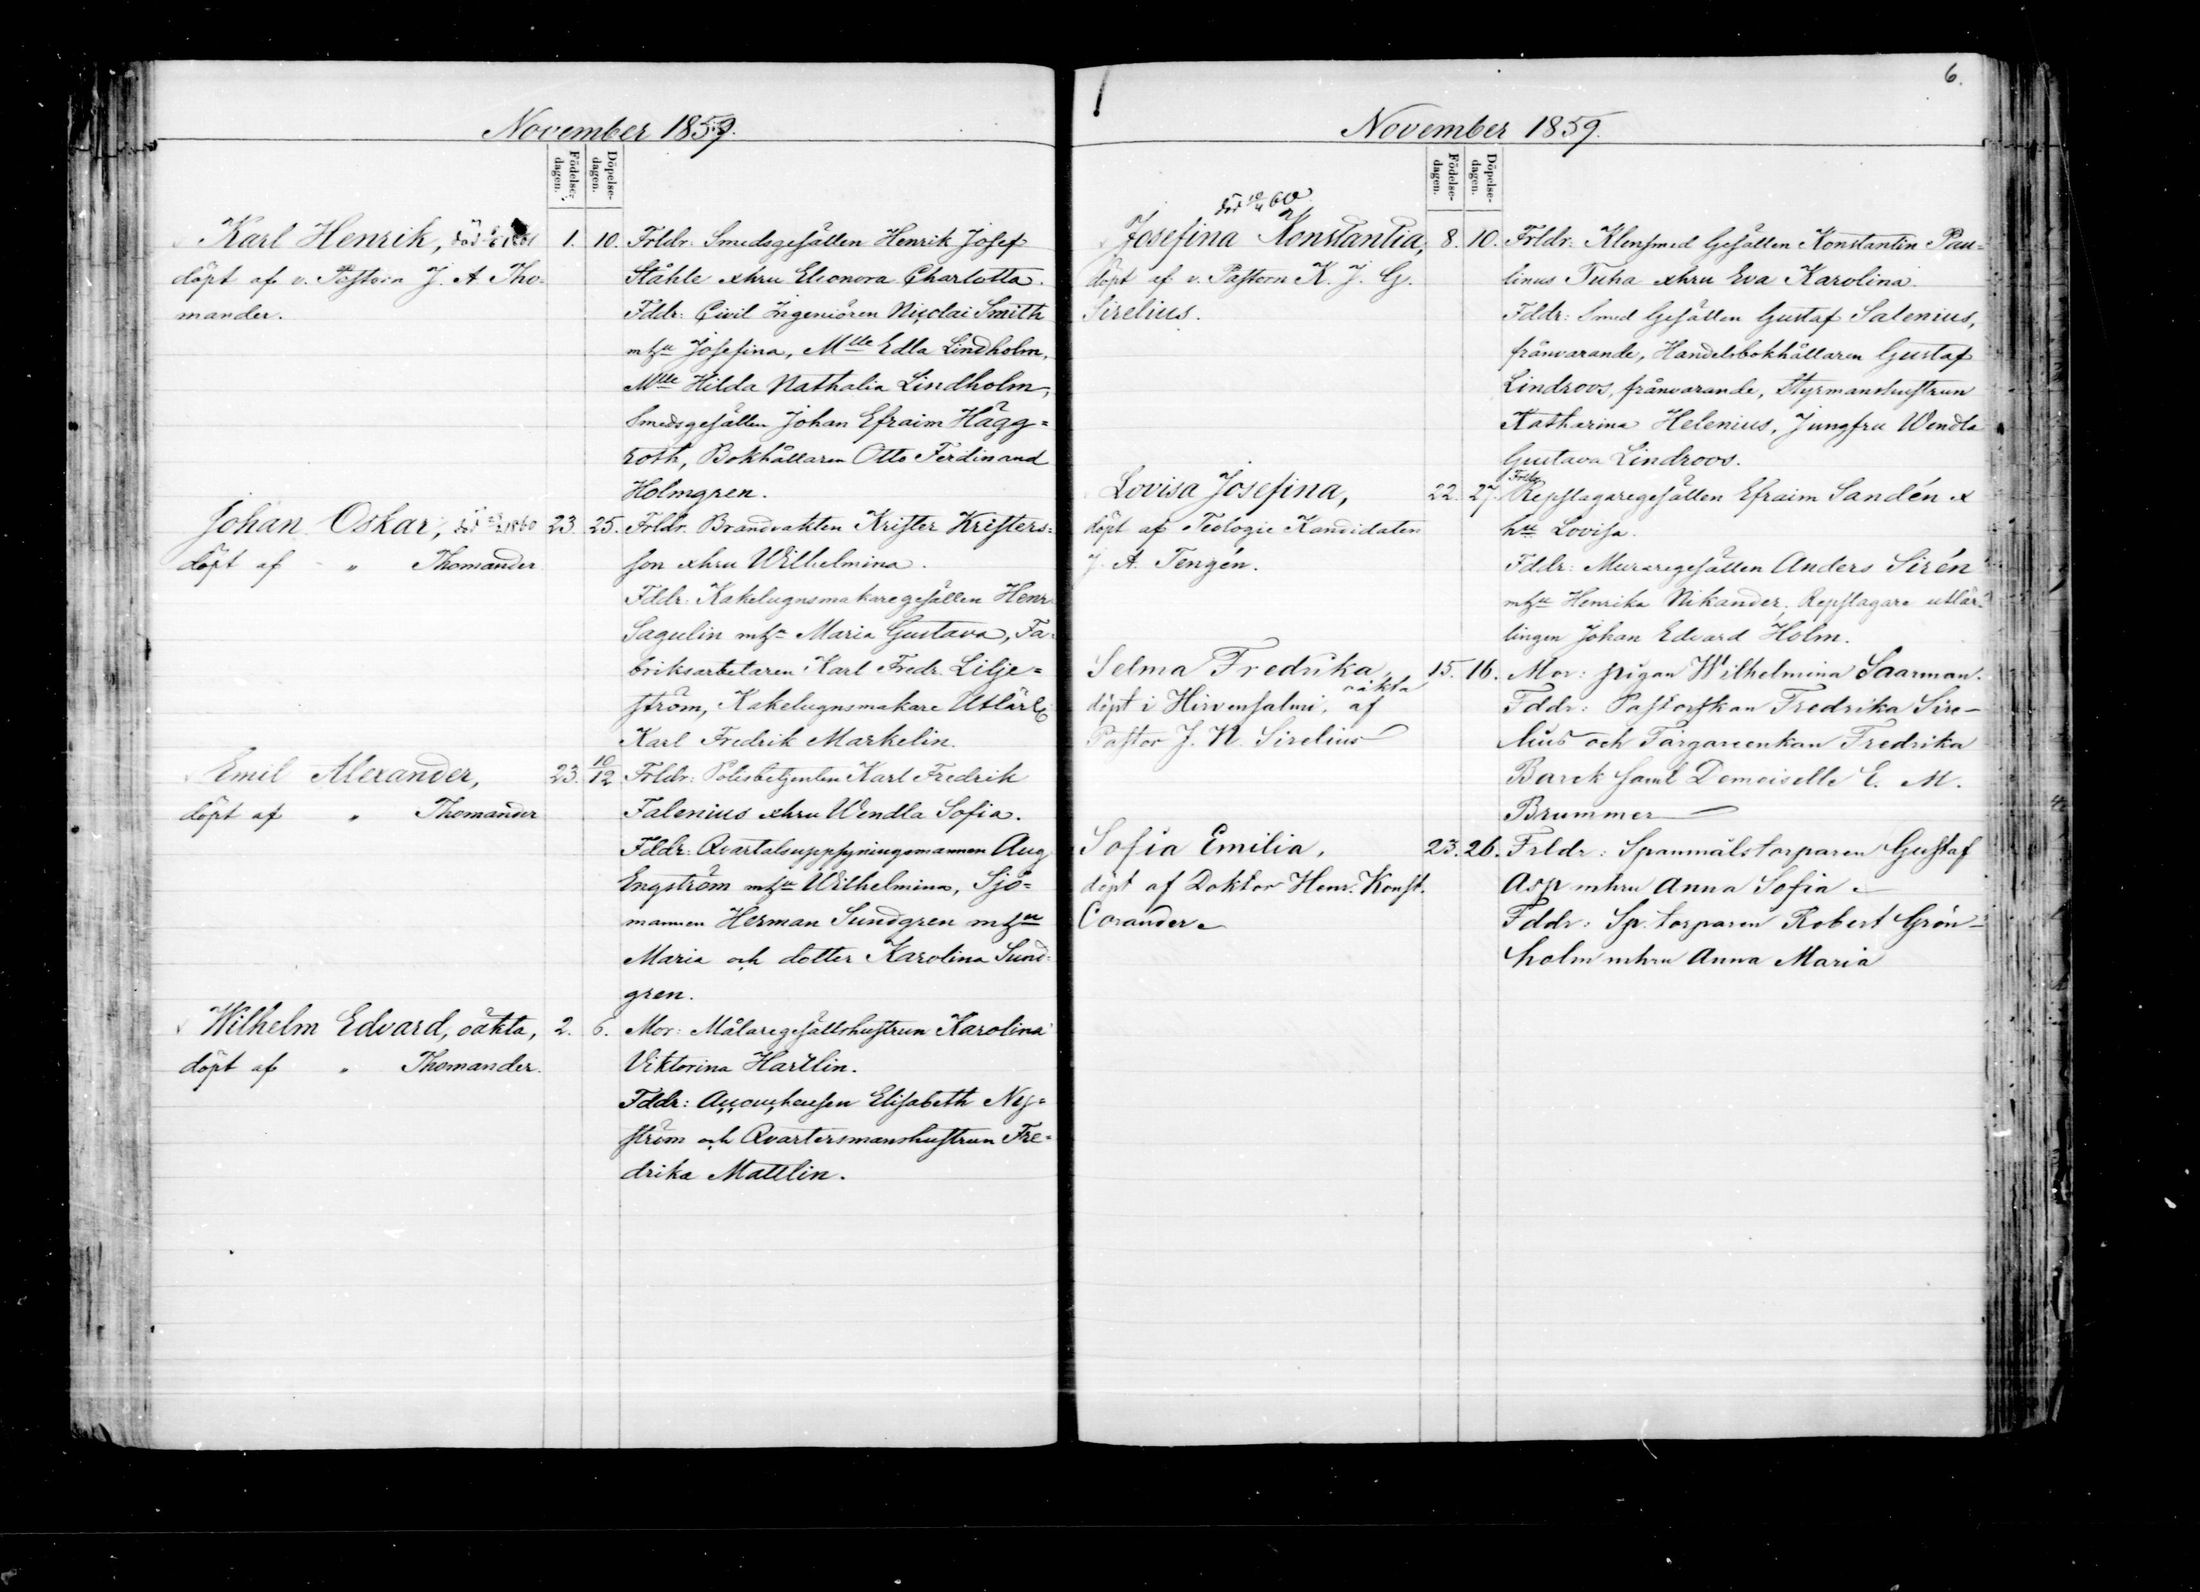 November 1859.
Födelse-
dagen.
Döpelse-
dagen.
Karl Henrik, död 1861
1. 10.
döpt af v. Pastorn J. A Tho-
mander.
Frldr: Smedsgesällen Henrik Josef
Ståhle o hru Eleonora Charlotta.
Fddr: Civil Ingeniören Nicolai Smith
m hu Josefina, Mlle Edla Lindholm,
Mlle Hilda Nathalia Lindholm,
Smedsgesällen Johan Efraim Hägg=
roth, Bokhållaren Otto Ferdinand
Holmgren.
Johan Oskar, död 1860
23. 25.
döpt af " Thomander
Frldr. Brandvakten Krister Kristers=
son o hru Wilhelmina.
Fddr: Kakelugnsmakaregesällen Henr.
Sagulin m hu Maria Gustava, Fa-
briksarbetaren Karl Fredr. Lilje=
ström, Kakelugnsmakare Utlärl
Karl Fredrik Markelin.
Emil Alexander,
23. 10/12
döpt af " Thomander
Frldr: Polisbetjenten Karl Fredrik
Falenius o hru Wendla Sofia.
Fddr: Qvartalsuppsyningsmannen Aug
Engström m hu Wilhelmina, Sjö=
mannen Herman Sundgren m hu
Maria och dotter Karolina Sund-
gren.
Wilhelm Edvard, oäkta,
2. 6.
döpt af " Thomander.
Mor: Målaregesällshustrun Karolina
Viktorina Hartlin.
Fddr: Elisabeth Ny=
ström och Qvartersmanshustrun Fre=
drika Mattlin.
6.
November 1859.
Födelse-
dagen.
Döpelse-
dagen.
död 60
Josefina Konstantia,
8. 10.
döpt af v. Pastorn K. J. G.
Sirelius.
Frldr: Klensmed Gesällen Konstantin Pau=
linus Tuha o hru Eva Karolina.
Fddr: Smed Gesällen Gustaf Salenius,
frånvarande, Handelsbokhållaren Gustaf
Lindroos, frånvarande, Styrmanshustrun
Katharina Helenius, Jungfru Wendla
Gustava Lindroos.
Lovisa Josefina,
22. 27.
döpt af Teologie Kandidaten
J. A. Tengén.
Frldr
Repslagaregesällen Efraim Sandén o
hu Lovisa.
Fddr: Muraregesällen Anders Sirén
m hu Henrika Nikander, Repslagare utlär-
lingen Johan Edvard Holm.
Selma Fredrika,
oäkta
15. 16.
döpt i Hirvensalmi, af
Pastor J. N. Sirelius
Mor: pigan Wilhelmina Saarman.
Fddr: Pastorskan Fredrika Sire-
lius och Färgareenkan Fredrika
Barck samt Demoiselle E. M.
Brummer
Sofia Emilia,
23. 26.
döpt af Doktor Henr. Konst.
Corander.
Frldr: Spanmålstorparen Gustaf
Asp m hru Anna Sofia.
Fddr: Sp. torparen Robert Grön-
holm m hru Anna Maria